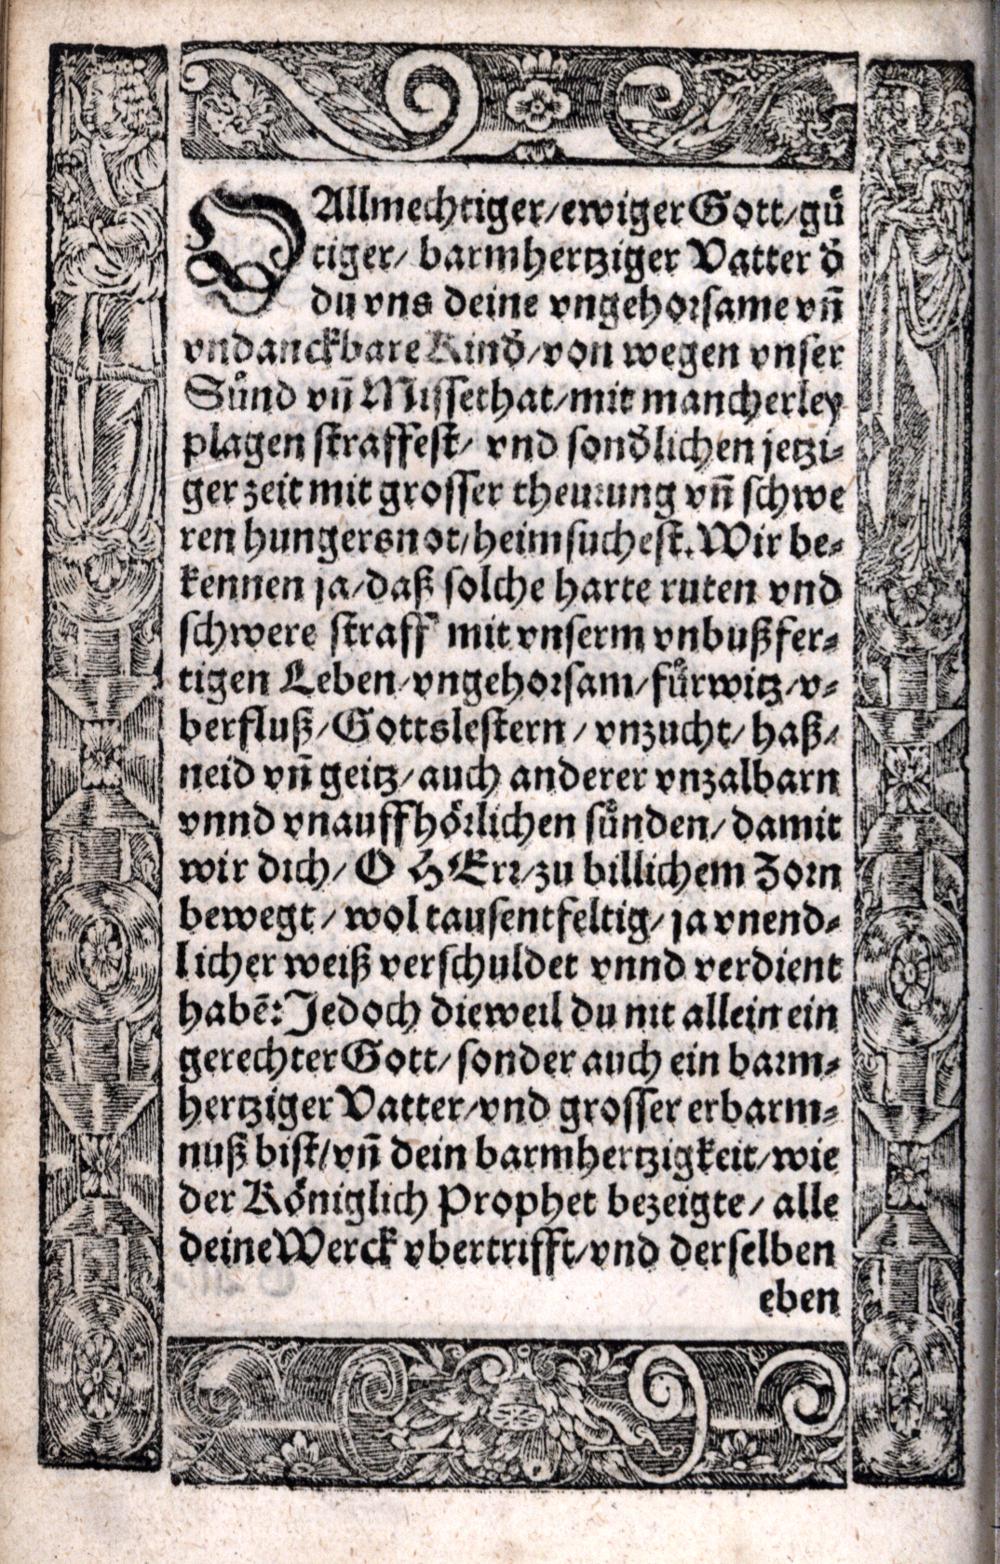 O Allmechtiger/ewiger Gott/guͤ
tiger/ barmhertziger Vatter dˀ
du vns deine vngehorsame vñ
vndanckbare Kindˀ/von wegen vnser
Suͤnd vñ Missethat/mit mancherley
plagen straffest/ vnd sondˀlichen jetzi⸗
ger zeit mit grosser theurung vñ schwe
ren hungersnot/heimsuchest. Wir be⸗
kennen ja/daß solche harte ruten vnd
schwere straff mit vnserm vnbußfer⸗
tigen Leben/vngehorsam/fuͤrwitz/v⸗
berfluß/Gottslestern/vnzucht/haß/
neid vñ geitz/auch anderer vnzalbarn
vnnd vnauffhoͤrlichen suͤnden/damit
wir dich/ O HErr/zu billichem Zorn
bewegt/ wol tausentfeltig/ja vnend⸗
licher weiß verschuldet vnnd verdient
habẽ: Jedoch dieweil du nit allein ein
gerechter Gott/sonder auch ein barm⸗
hertziger Vatter/vnd grosser erbarm⸗
nuß bist/vñ dein barmhertzigkeit/wie
der Koͤniglich Prophet bezeigte/ alle
deine Werck vbertrifft/vnd derselben
eben